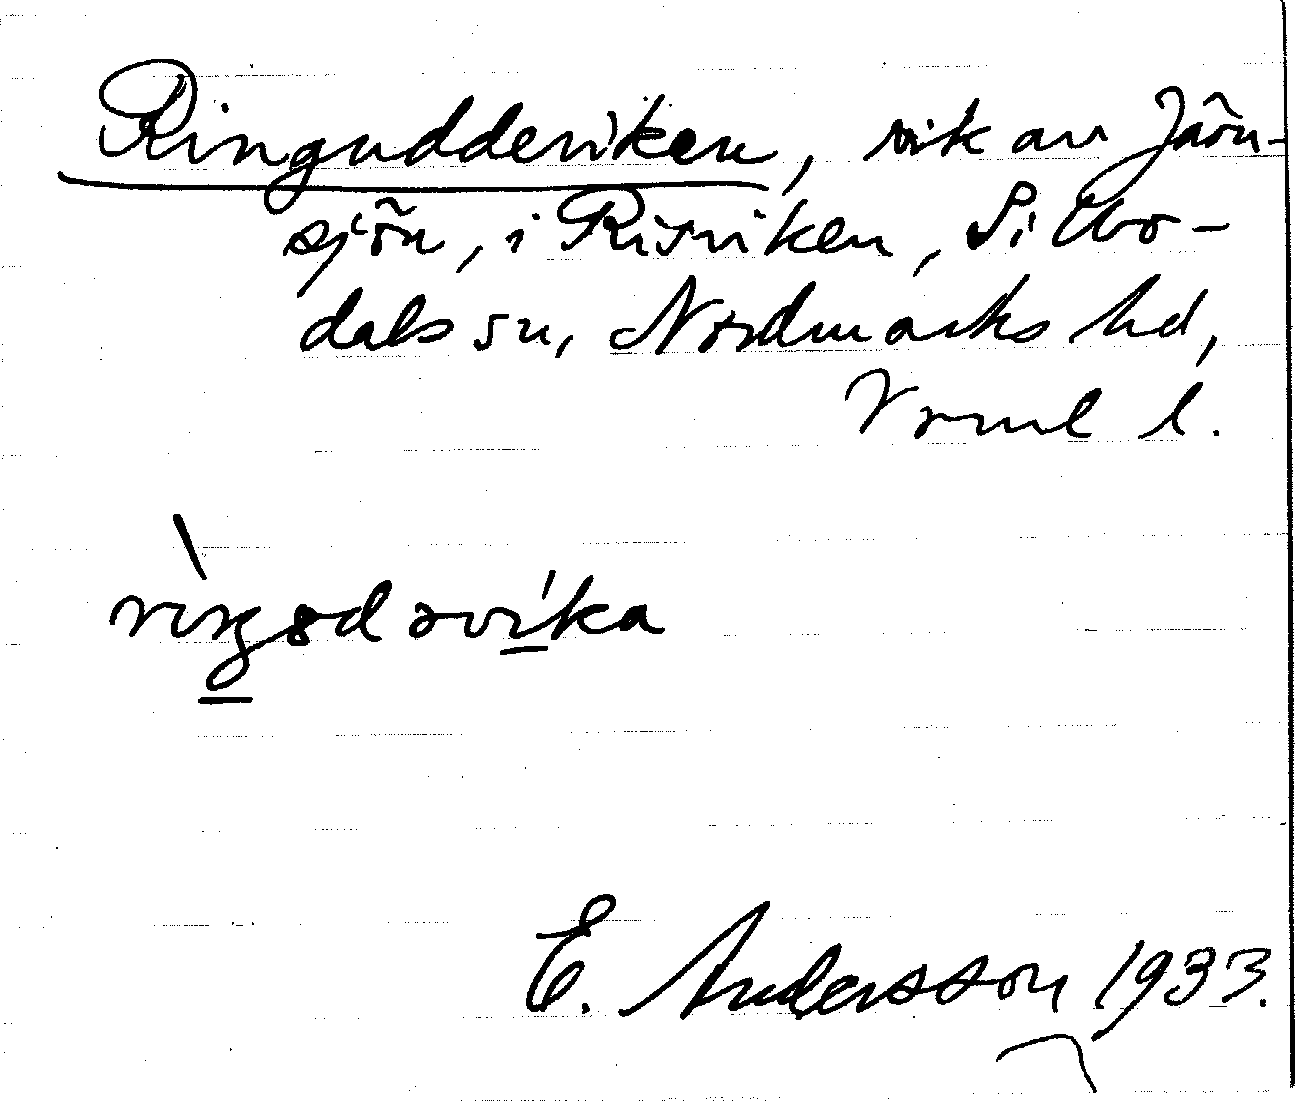 Ringuddeviken, vik av Järn-
sjön, i Risviken, Sillbo-
dals sn, Nordmarks hd,
Vrml l.
E. Andersson 1933.